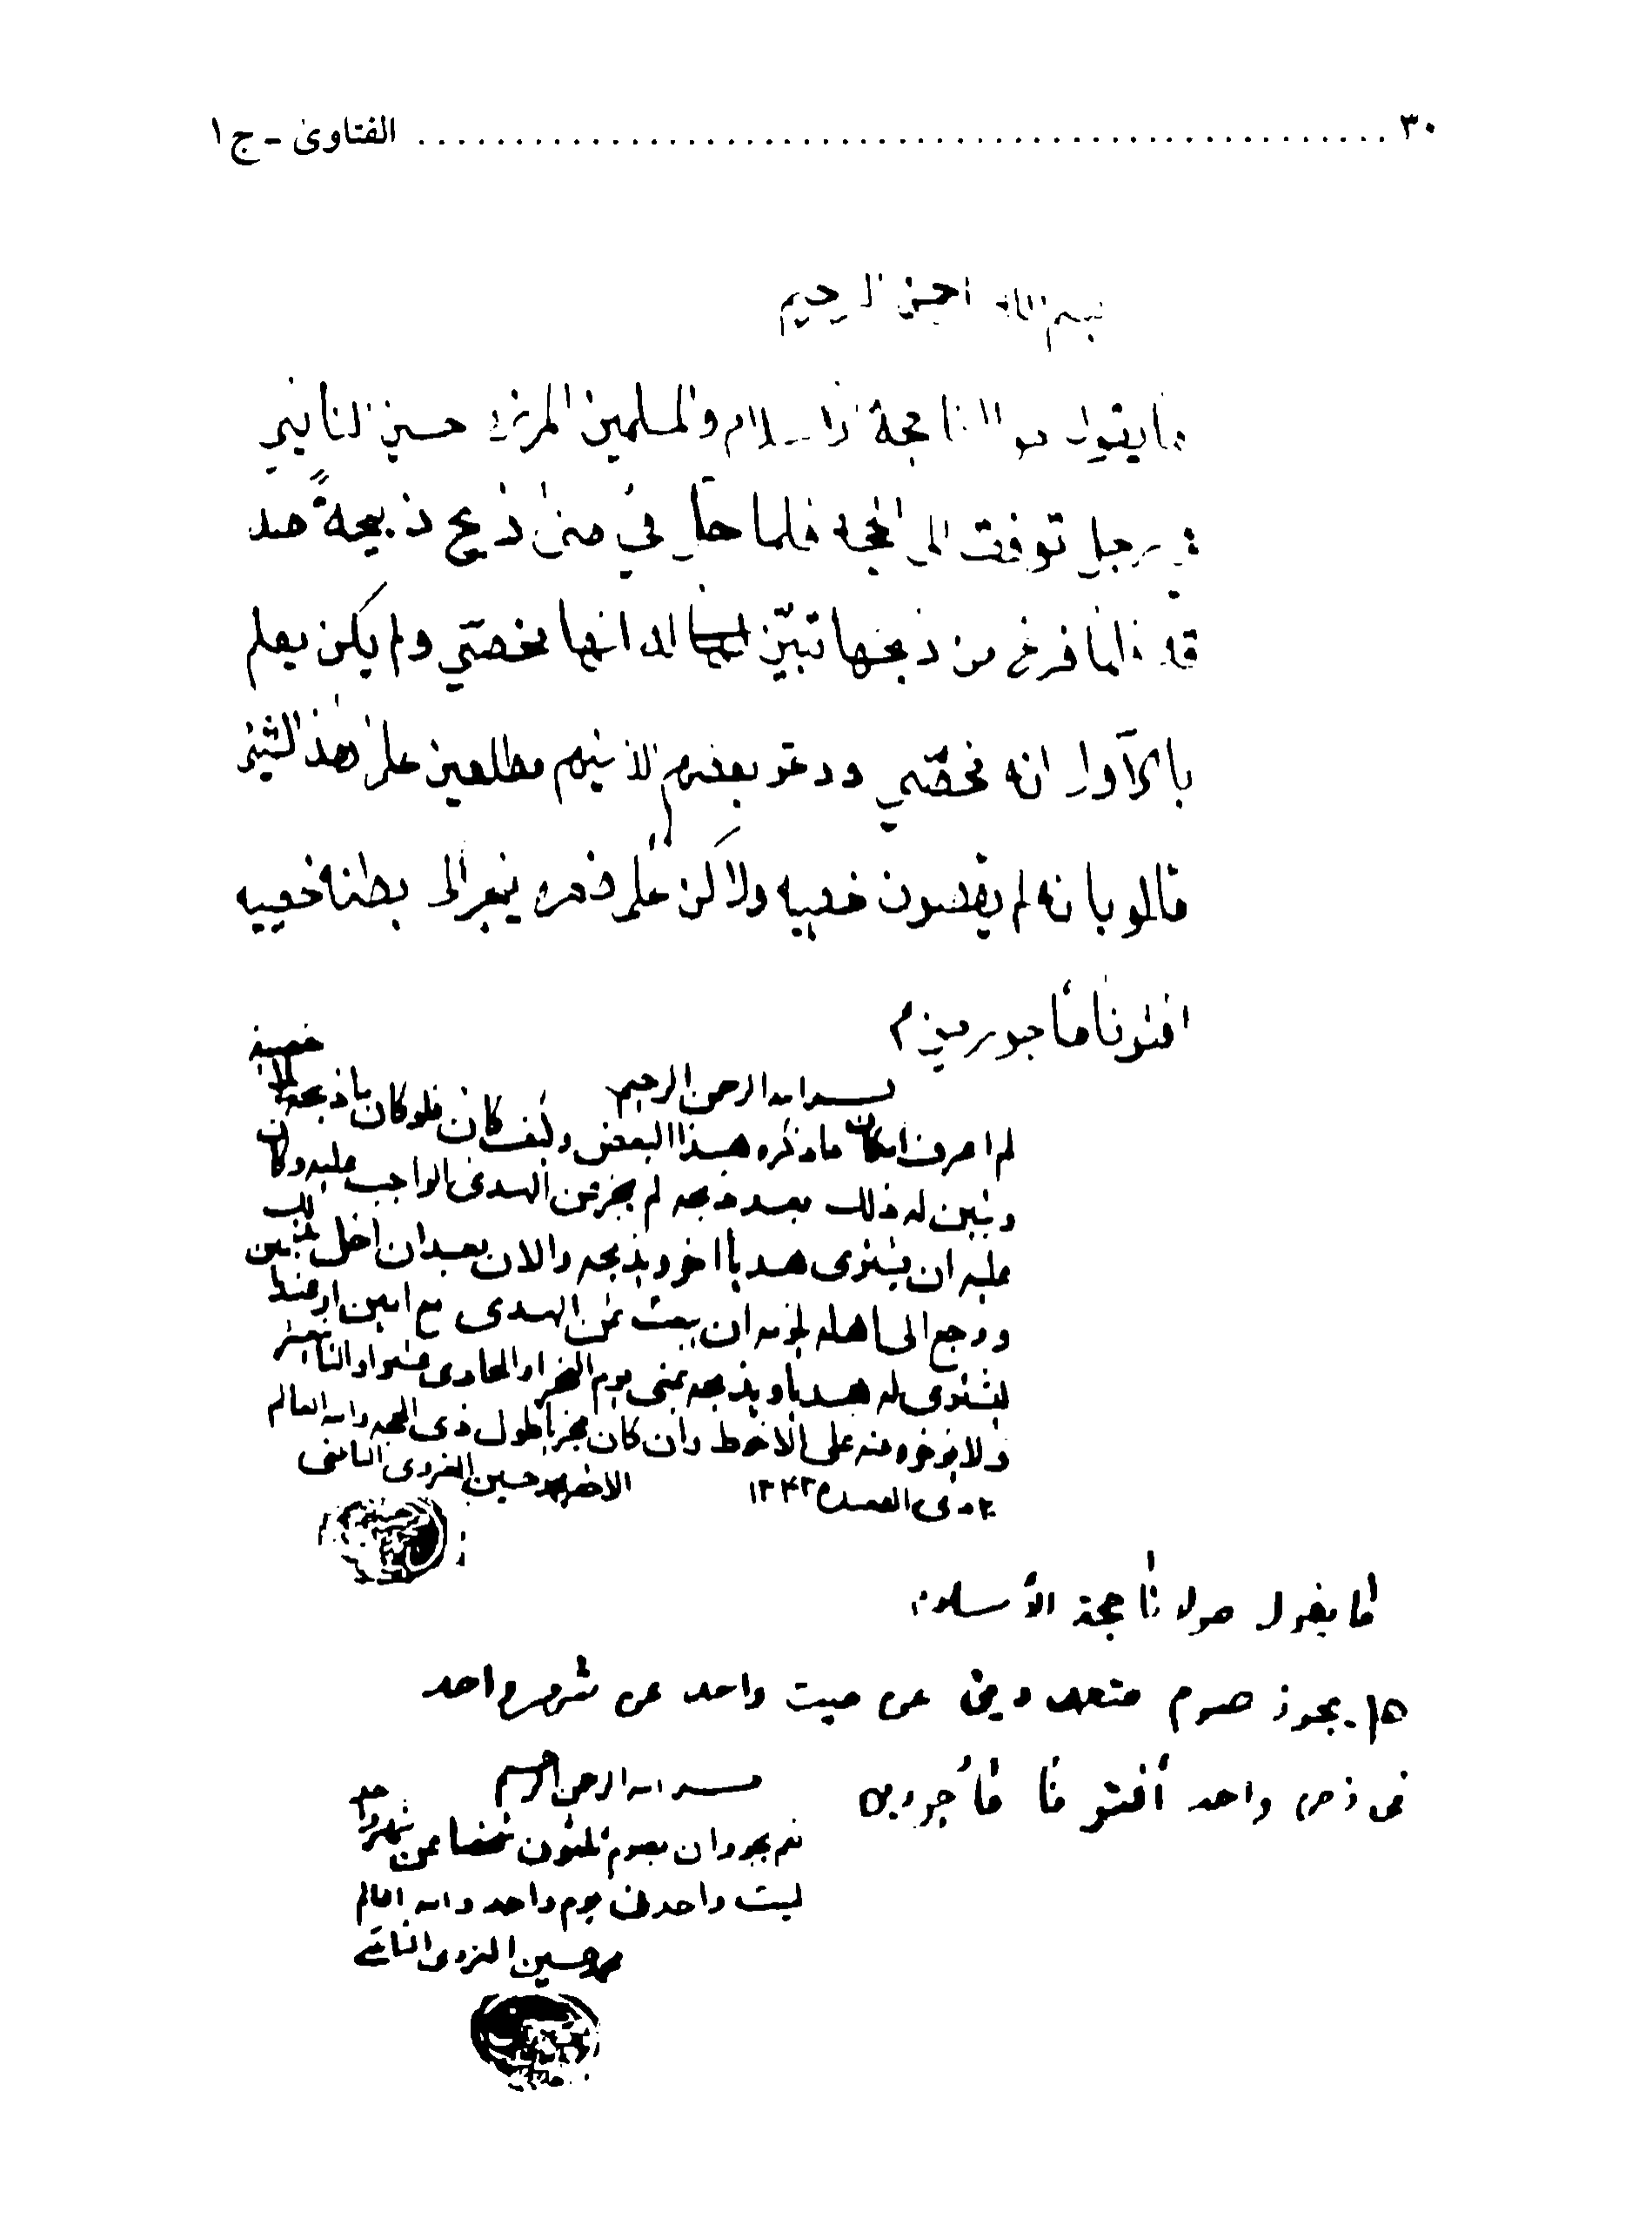 ٣٠ ........ الفتاوى - ج ١
بسم الله الرحمن الرحيم
ما يقول مولانا حجة الاسلام والمسلمين الميرزا حسين النائيني
في رجل توفقت الى الحجه فلما حل في منىٰ ذبح ذبيحةً
فلما فرغ من ذبحها تبيّن له انها مخصيّ ولم يكن يعلم
بالاول انه مخصّي بعضهم الاذينهم مطلعين على هذ الشيئ
قالو بانه لم يقصون خصيه ولاكن على ينجر الى بطنه خصيه
افتونا مأجورين م
بسم الله الرحمن الرحيم
لم اعرف امكان ما ذكره هذا البعض وكيف كان فلو كان ما ذبحه خصيا
وتبين له ذلك بعد ذبحه لم يجز عن الهدى الواجب عليه وكان
عليه ان يشترى هديا اخر ويذبحه والان بعد ان اخل بذلك
ورجع الى اهله لزمه ان يبعث ثمن الهدى مع امين
ليشترى له هديا ويذبحه بمنى يوم النحر او الحادى عشر او الثانيعشر
ولا يؤخره عنه على الأحوط وان كان مجزيا طول ذى الحجه والله العالم
ذى القعدة ١٣٤٢ الاحقر محمد حسين الغروى النائينى
ما يقول مولانا حجة الأسلام
هل يجوز صوم متعددين عن ميت واحد عن شهر واحد
فى زمن واحد أفتونا مأجورين
بسم الله الرحمن الرحيم
نعم يجوز ان يصوم ثلثون شخصا عن شهر واحد
لميت واحد فى يوم واحد والله العالم
محمد حسين الغروى النائينى